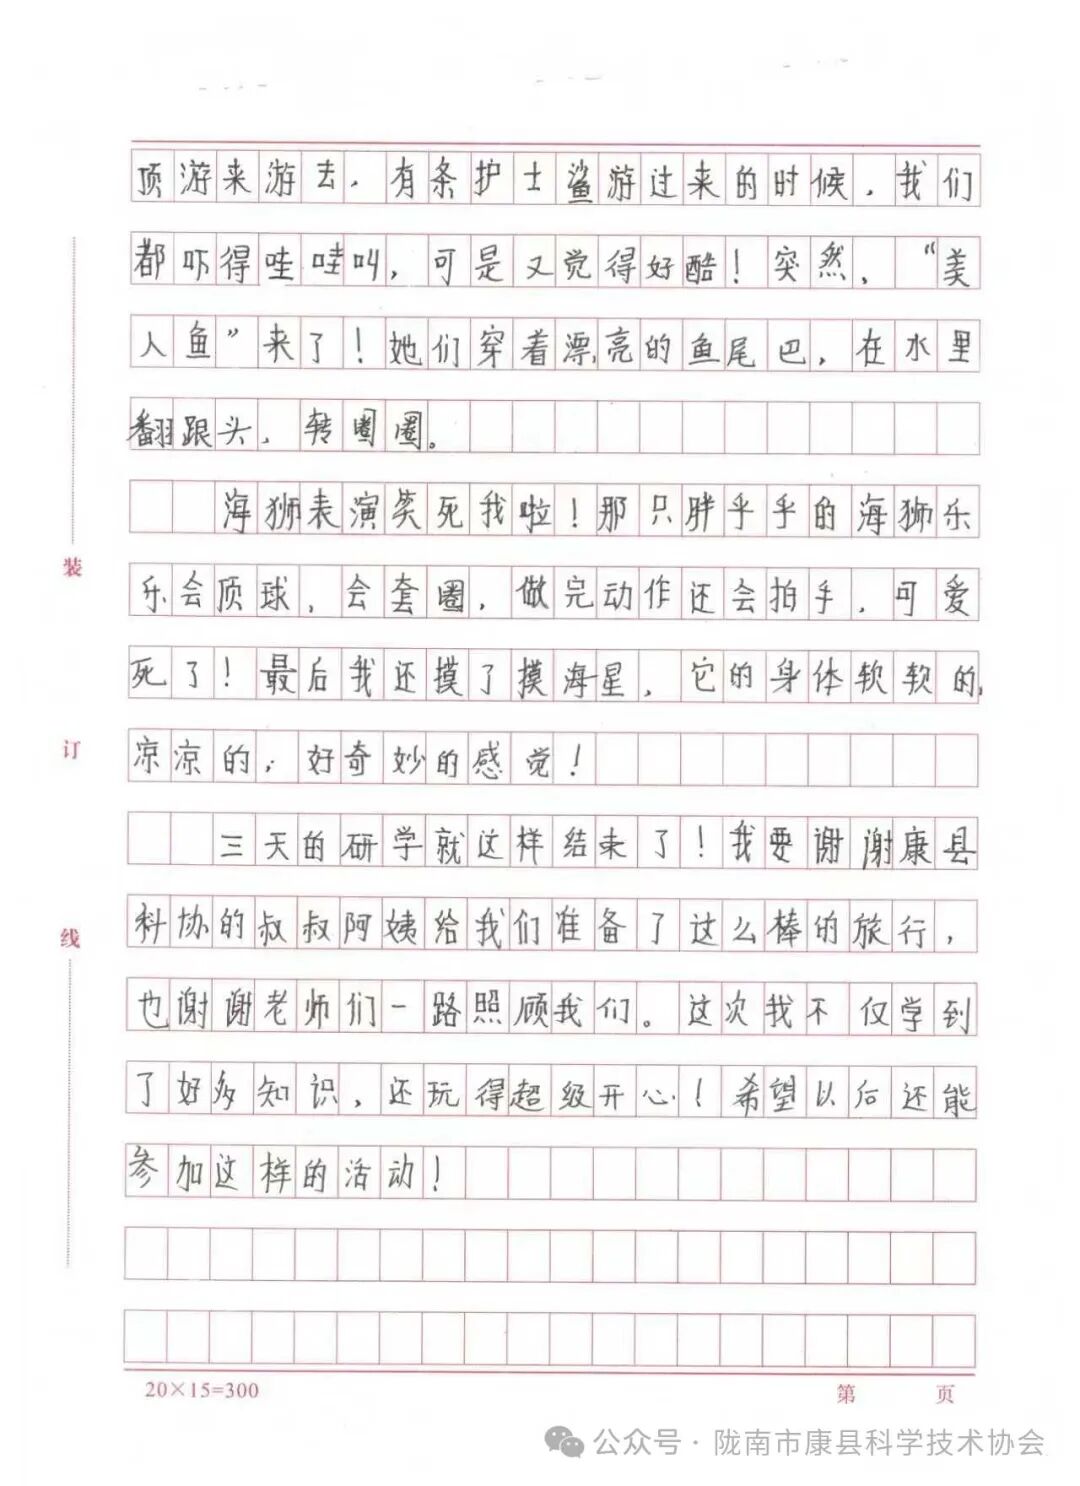 顶游来游去，有条护士鲨游过来的时候，我们
都吓得哇哇叫，可是又觉得好酷！突然，“美
人鱼”来了！她们穿着漂亮的鱼尾巴，在水里
翻跟头，转圈圈。
海狮表演笑死我啦！那只胖乎乎的海狮乐
乐会顶球，会套圈，做完动作还会拍手，可爱
死了！最后我还摸了摸海星，它的身体软软的，
凉凉的，好奇妙的感觉！
三天的研学就这样结束了！我要谢谢康县
科协的叔叔阿姨给我们准备了这么棒的旅行，
也谢谢老师们一路照顾我们。这次我不仅学到
了好多知识，还玩得超级开心！希望以后还能
参加这样的活动！
装
订
线
20×15=300
第 页
公众号·陇南市康县科学技术协会